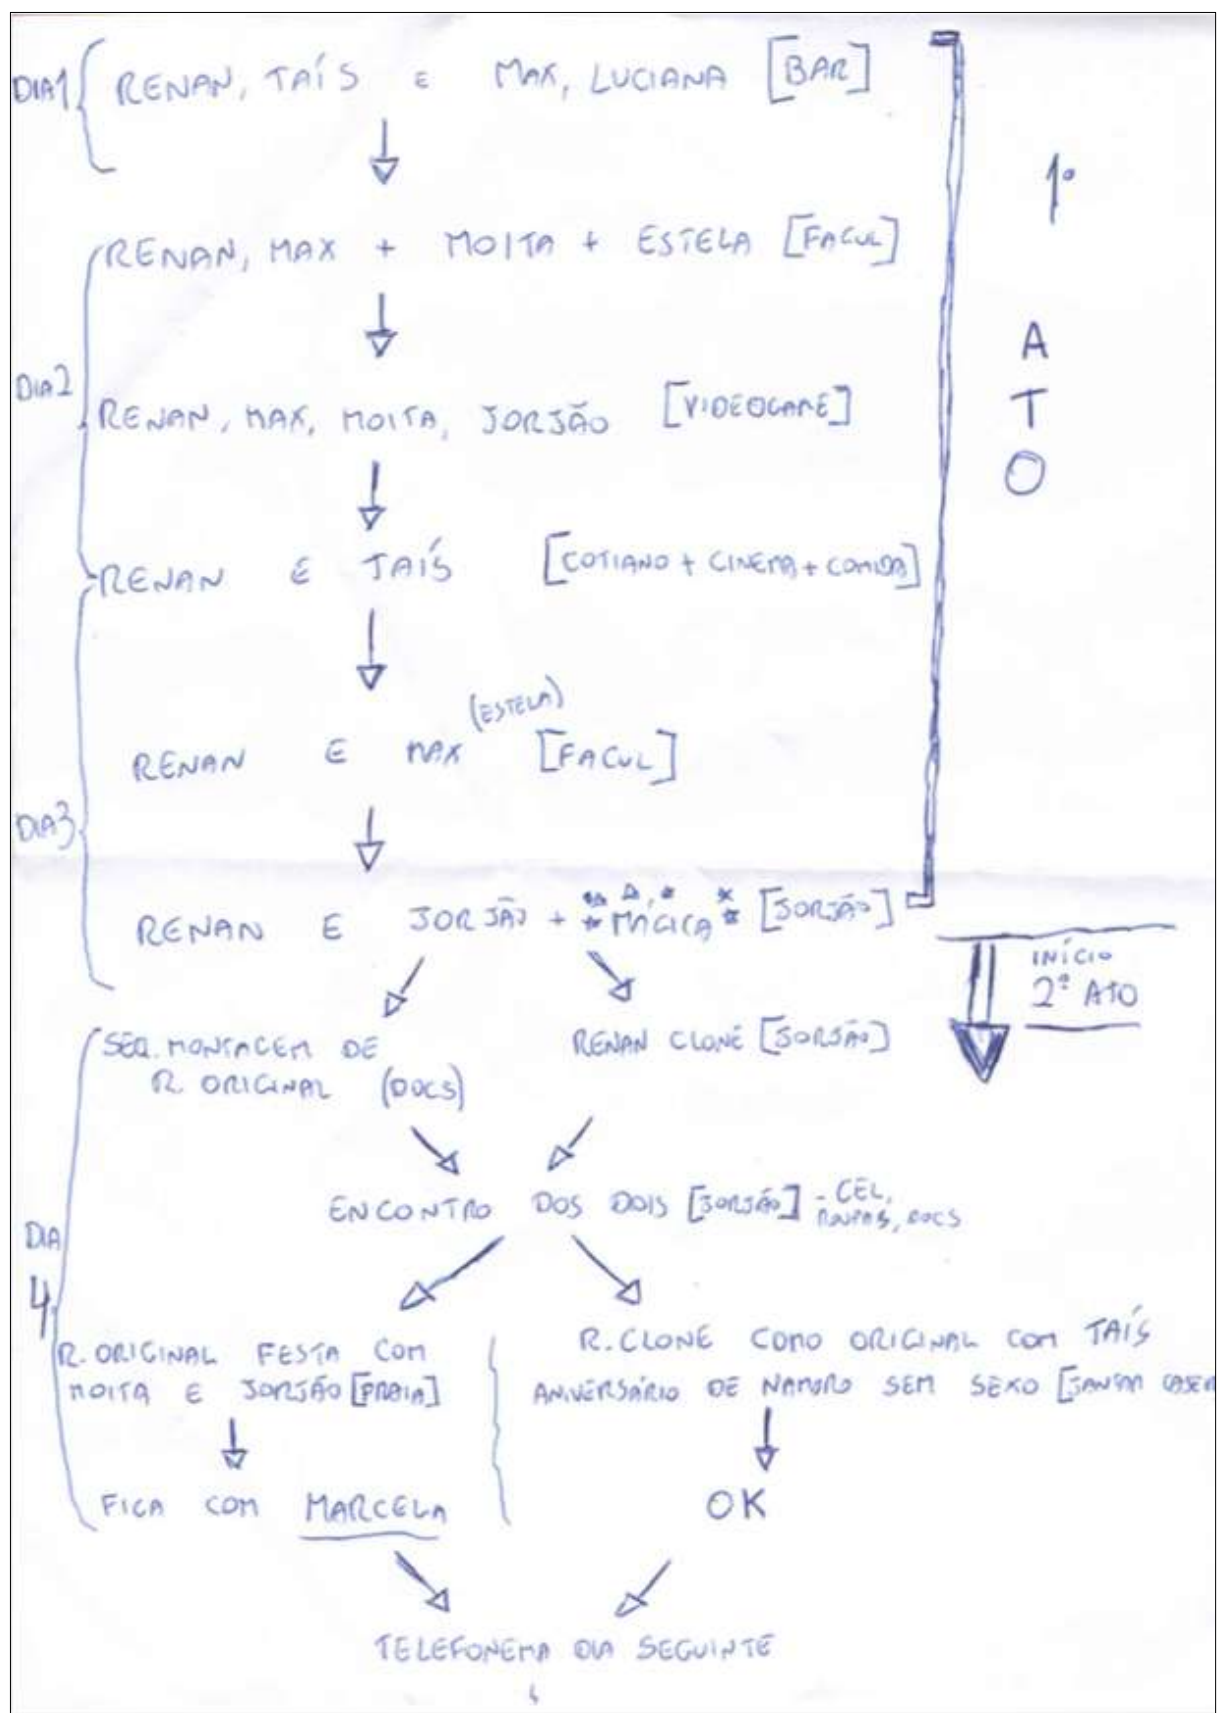 DIA1 { RENAN, TAÍS E MAX, LUCIANA [BAR]
1º
RENAN, MAX + MOITA + ESTELA [FACUL]
A
T
O
DIA2
RENAN, MAX, MOITA, JORJÃO [VIDEOGAME]
RENAN E TAÍS [COTIANO + CINEMA + COMIDA]
(ESTELA)
RENAN E MAX [FACUL]
DIA3
RENAN E JORJÃO + MÁGICA [JORJÃO]
INÍCIO
2º ATO
SEQ. MONTAGEM DE
R. ORIGINAL (DOCS)
RENAN CLONE [JORJÃO]
ENCONTRO DOS DOIS [JORJÃO] - CEL,
ROUPAS, DOCS
DIA
4
R. ORIGINAL FESTA COM
MOITA E JORJÃO [PRAIA]
R. CLONE COMO ORIGINAL COM TAÍS
ANIVERSÁRIO DE NAMORO SEM SEXO [JANTAR CASEI
FICA COM MARCELA
OK
TELEFONEMA DIA SEGUINTE